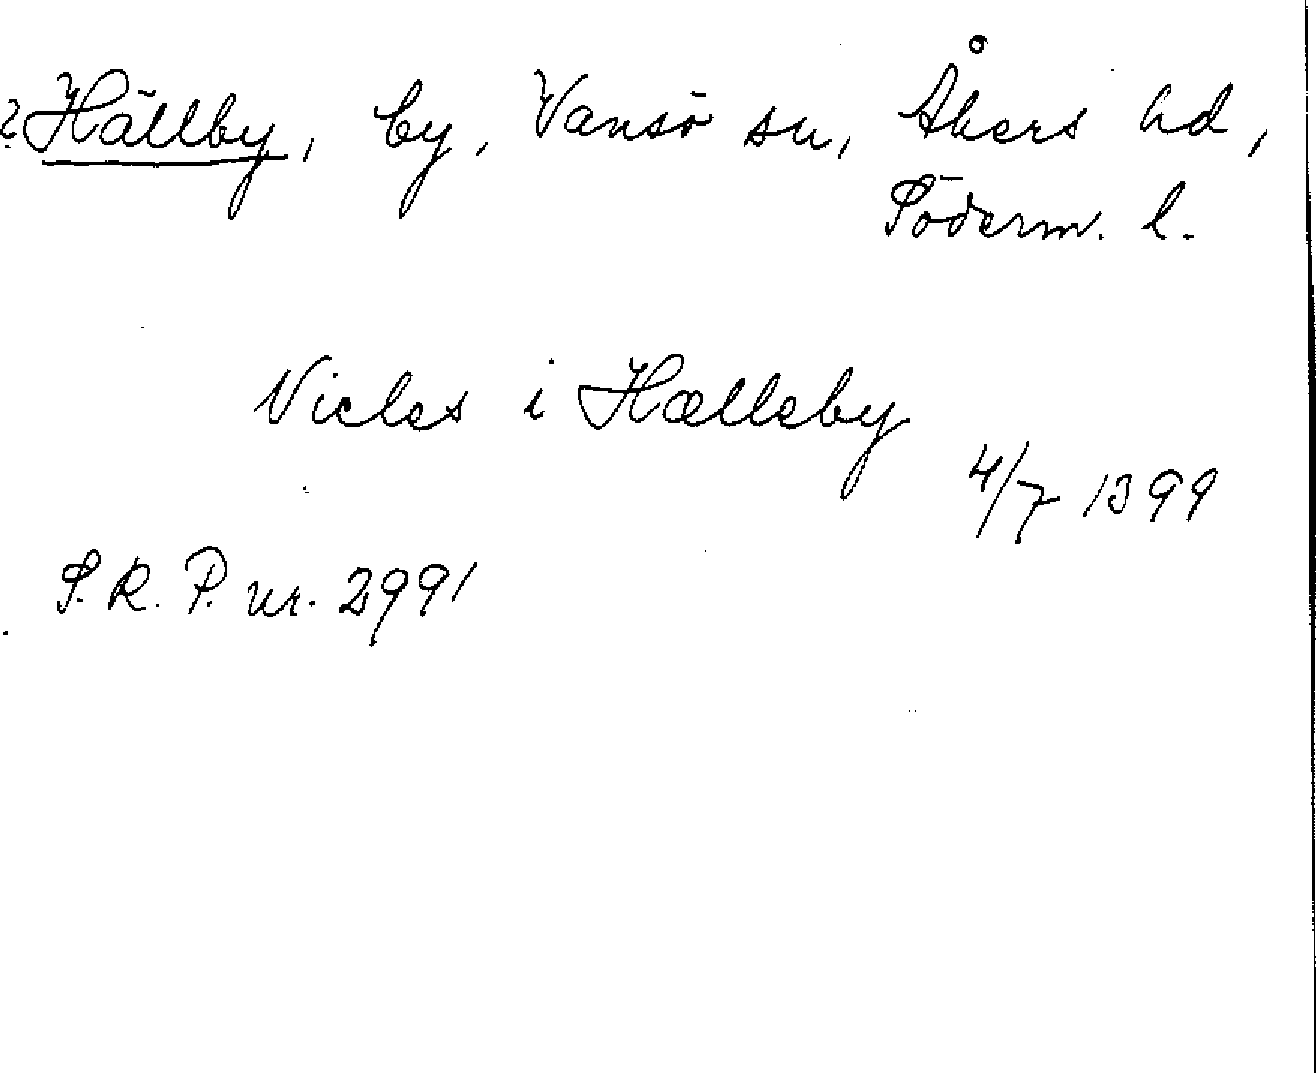 ? Hällby, by, Vansö sn, Åkers hd,
Söderm. l.
Niclas i Hælleby
4/7 1399
S. R. P. nr. 2991